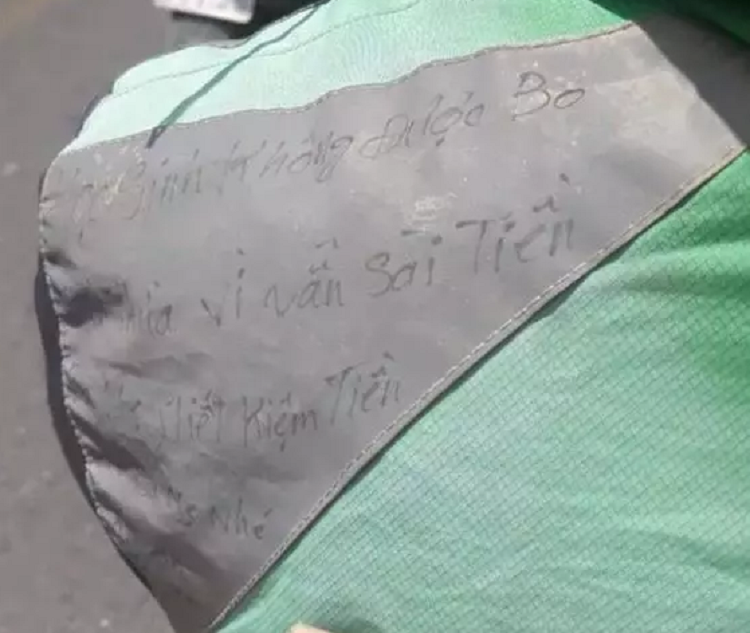 Sinh không được Bo
vì vẫn Sài Tiền
Tiết Kiệm Tiền
Nhé